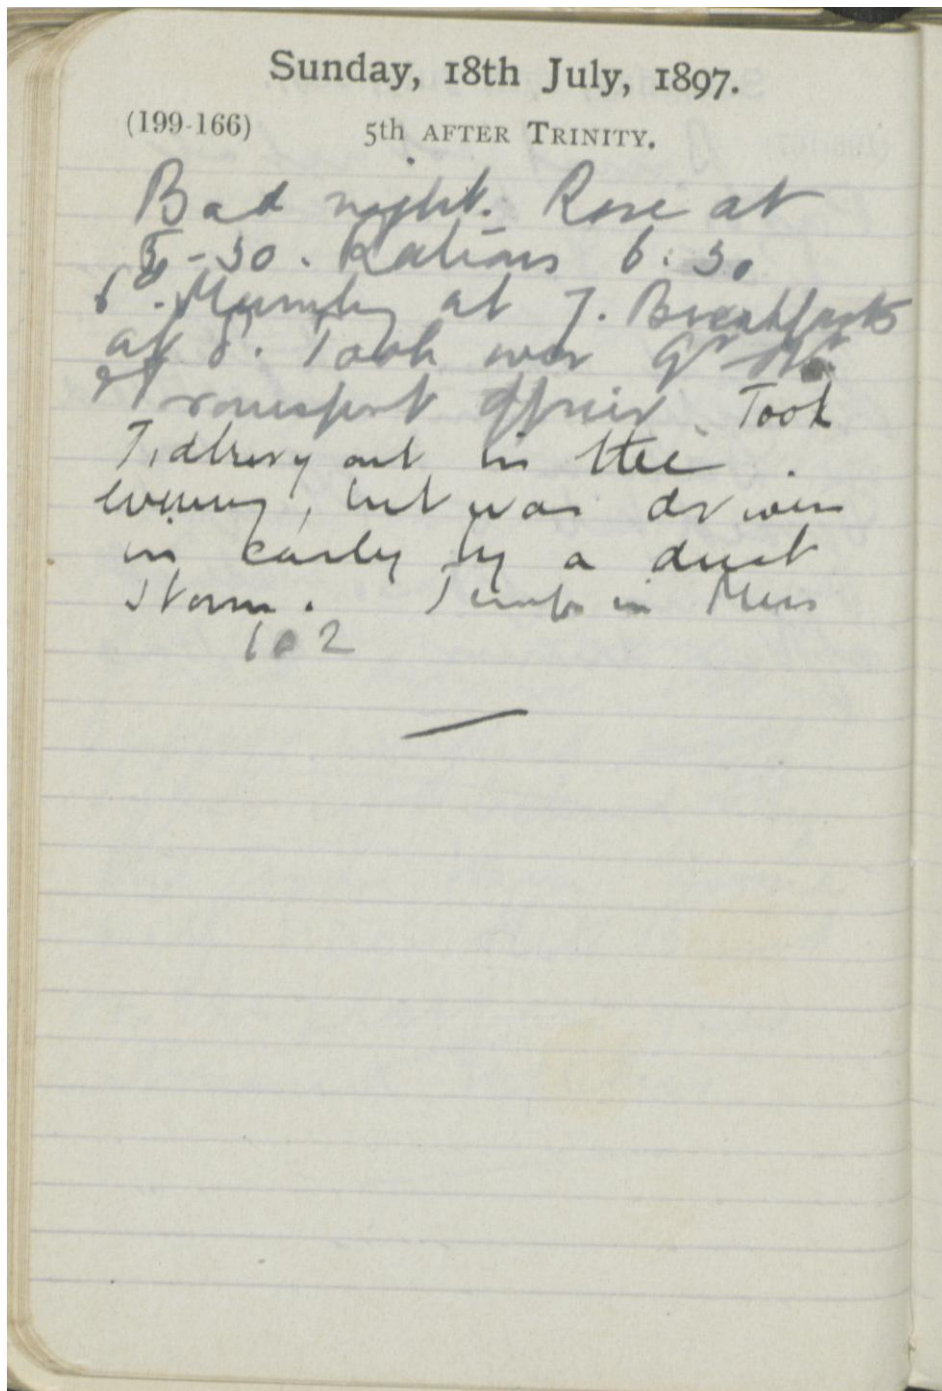 Sunday, 18th July, 1897.
(199-166) 5th AFTER TRINITY.
Bad night. Rose at
5-30. Rations 6.30
at 7. Breakfast
at 8. Took over
Transport Officer. Took
out in the
evening, but was driven
in early by a dust
storm. Temp in Mess
102